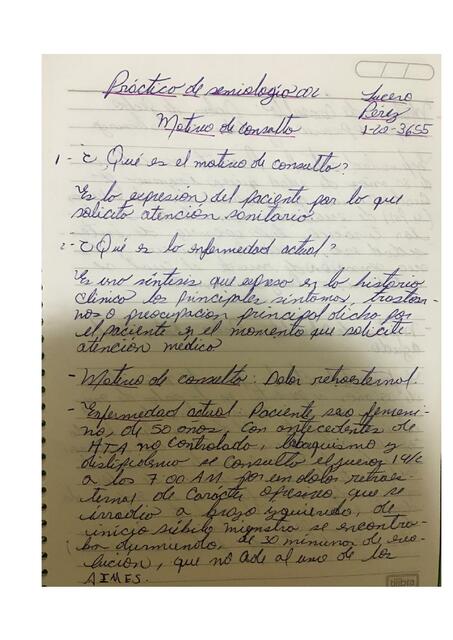 Práctico de semiología 001
Lucero
Pérez
1-20-3655
Motivo de consulta
1- ¿Qué es el motivo de consulta?
Es la expresión del paciente por lo que
solicita atención sanitaria.
2- ¿Qué es la enfermedad actual?
Es una síntesis que expresa en la historia
clínica los principales síntomas, trastor-
nos o preocupación principal dicha por
el paciente en el momento que solicite
atención médica
- Motivo de consulta: Dolor retroesternal.
- Enfermedad actual: Paciente, sexo femeni-
na, de 50 años, con antecedentes de
HTA no controlada, tabaquismo y
dislipidemia se consulta el jueves
a las 7:00 AM por un dolor retroes-
ternal de carácter opresivo, que se
irradia a brazo izquierdo, de
inicio súbito mientra se encontra-
ba durmiendo, de 30 minutos de evo-
lución, que no cede al uso de los
AINES.
tilibra